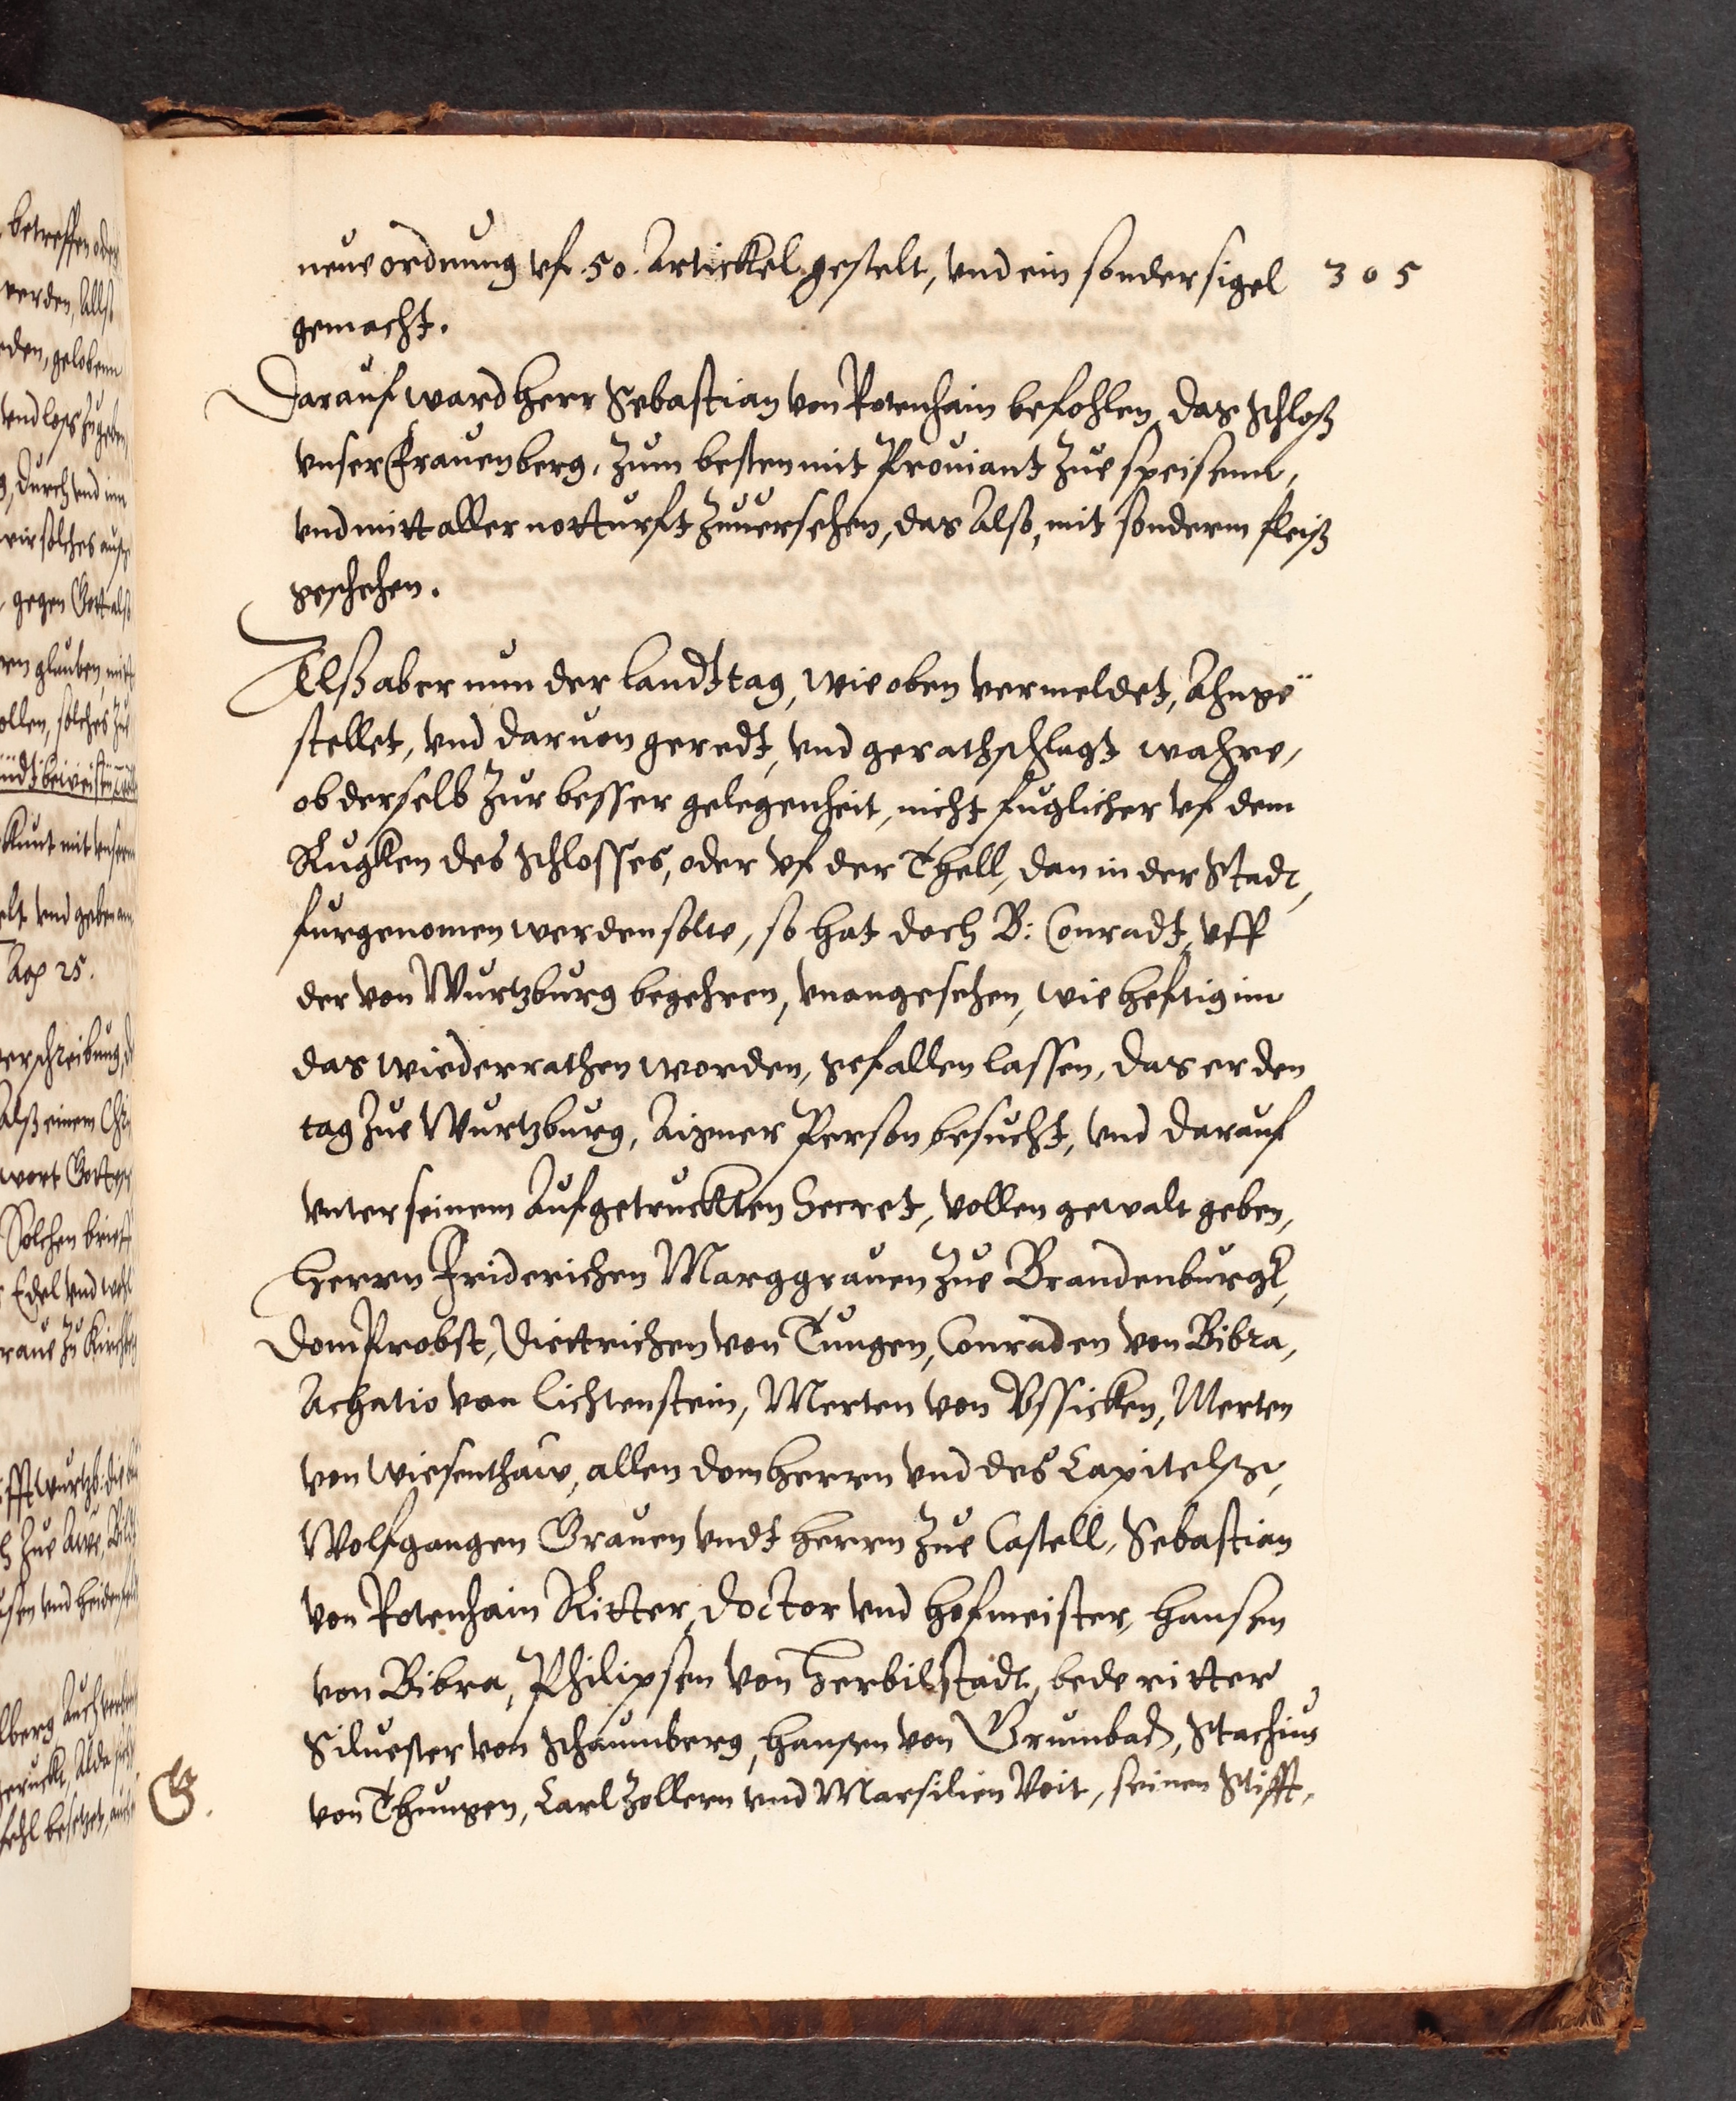 neue ordnung vf .50. Artickel gestelt, vnd ein sonder sigel
305
gemacht.
Darauf ward herr Sebastian von Rotenhain befohlen, das Schloß
vnser Frauenberg, zum besten mit Prouiant zue speisenn,
vnd mitt aller notturft zuuersehen, das Also, mit sonderm fleiß
geschehen.
Alß aber nun der landttag, wie oben vermeldet, Ahnge¨
stellet, vnd daruon geredt, vnd gerathschlagt wahre,
ob derselb zur besser gelegenheit, nicht fuglicher vf dem
Rugken des Schlosses, oder vf der Thell, dan in der Stadt,
furgenomen werden solte, so hat doch B: Conradt, vff
der von Wurtzburg begehren, vnangesehen, wie heftig im
das wiederrathen worden, gefallen lassen, das er den
tag zue Wurtzburg, Aigner Person besucht, vnd darauf
vnter seinem Aufgetruckten Secret, vollen gewalt geben,
Herrn Friderichen Marggrauen zue Brandenburgk,
DomProbst, Diettrichen von Tungen, Conraden von Bibra,
Achatio von Lichtenstein, Merten von Vssicken, Merten
von Wiesenthaw, allen domherrn vnd des Capitelß,
Wolfgangen Grauen vndt herrn zue Castell, Sebastian
von Rotenhain Ritter, doctor vnd hofmeister, hansen
von Bibra, Philipsen von Herbilstadt, bede ritter
Siluester von Schaumberg, hansen von Grumbach, Stachius
von Thungen, Carl Zollern vnd Marsilien Voit, seinen Stifft,